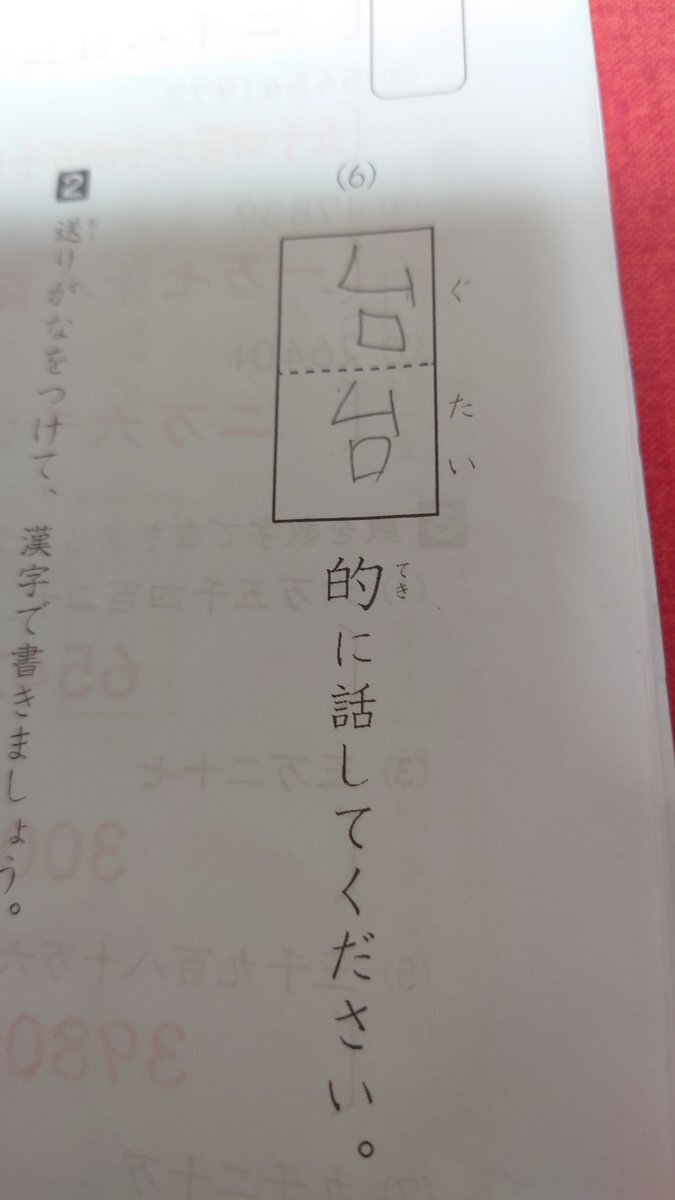 (6)
台台的に話してください。
ぐたい
てき
2 送りがなをつけて、漢字で書きましょう。
おく